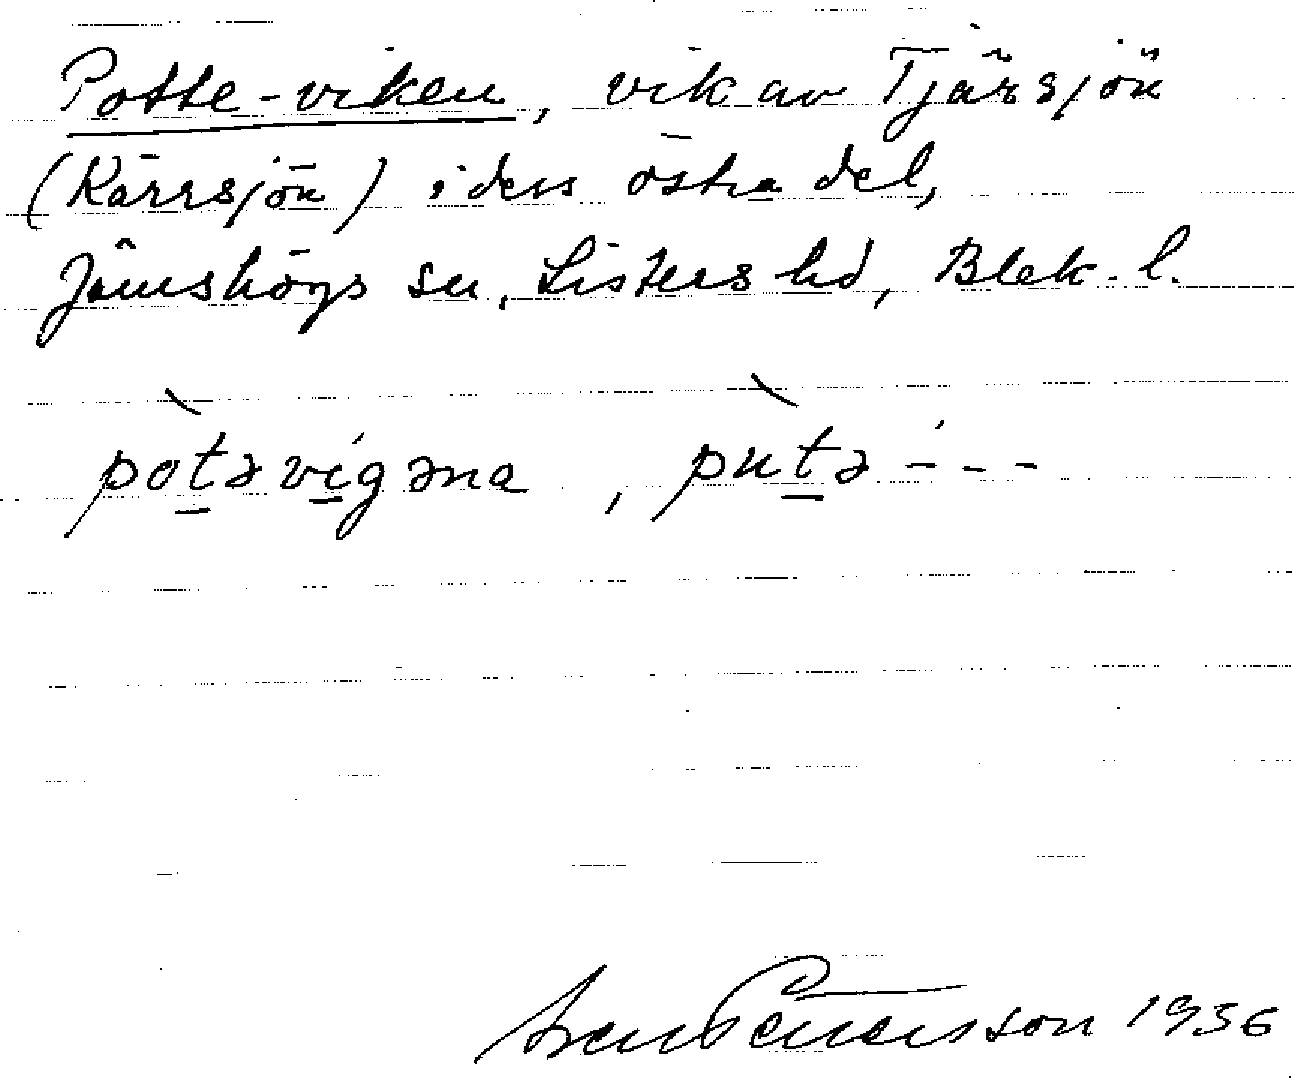 Potte-viken, vik av Tjärsjön
(Kärrsjön) i dess östra del,
Jämshögs sn, Listers hd, Blek. l.
pòt̲əvi̲gəna, pùt̲ə - - -
Sven Pettersson 1936